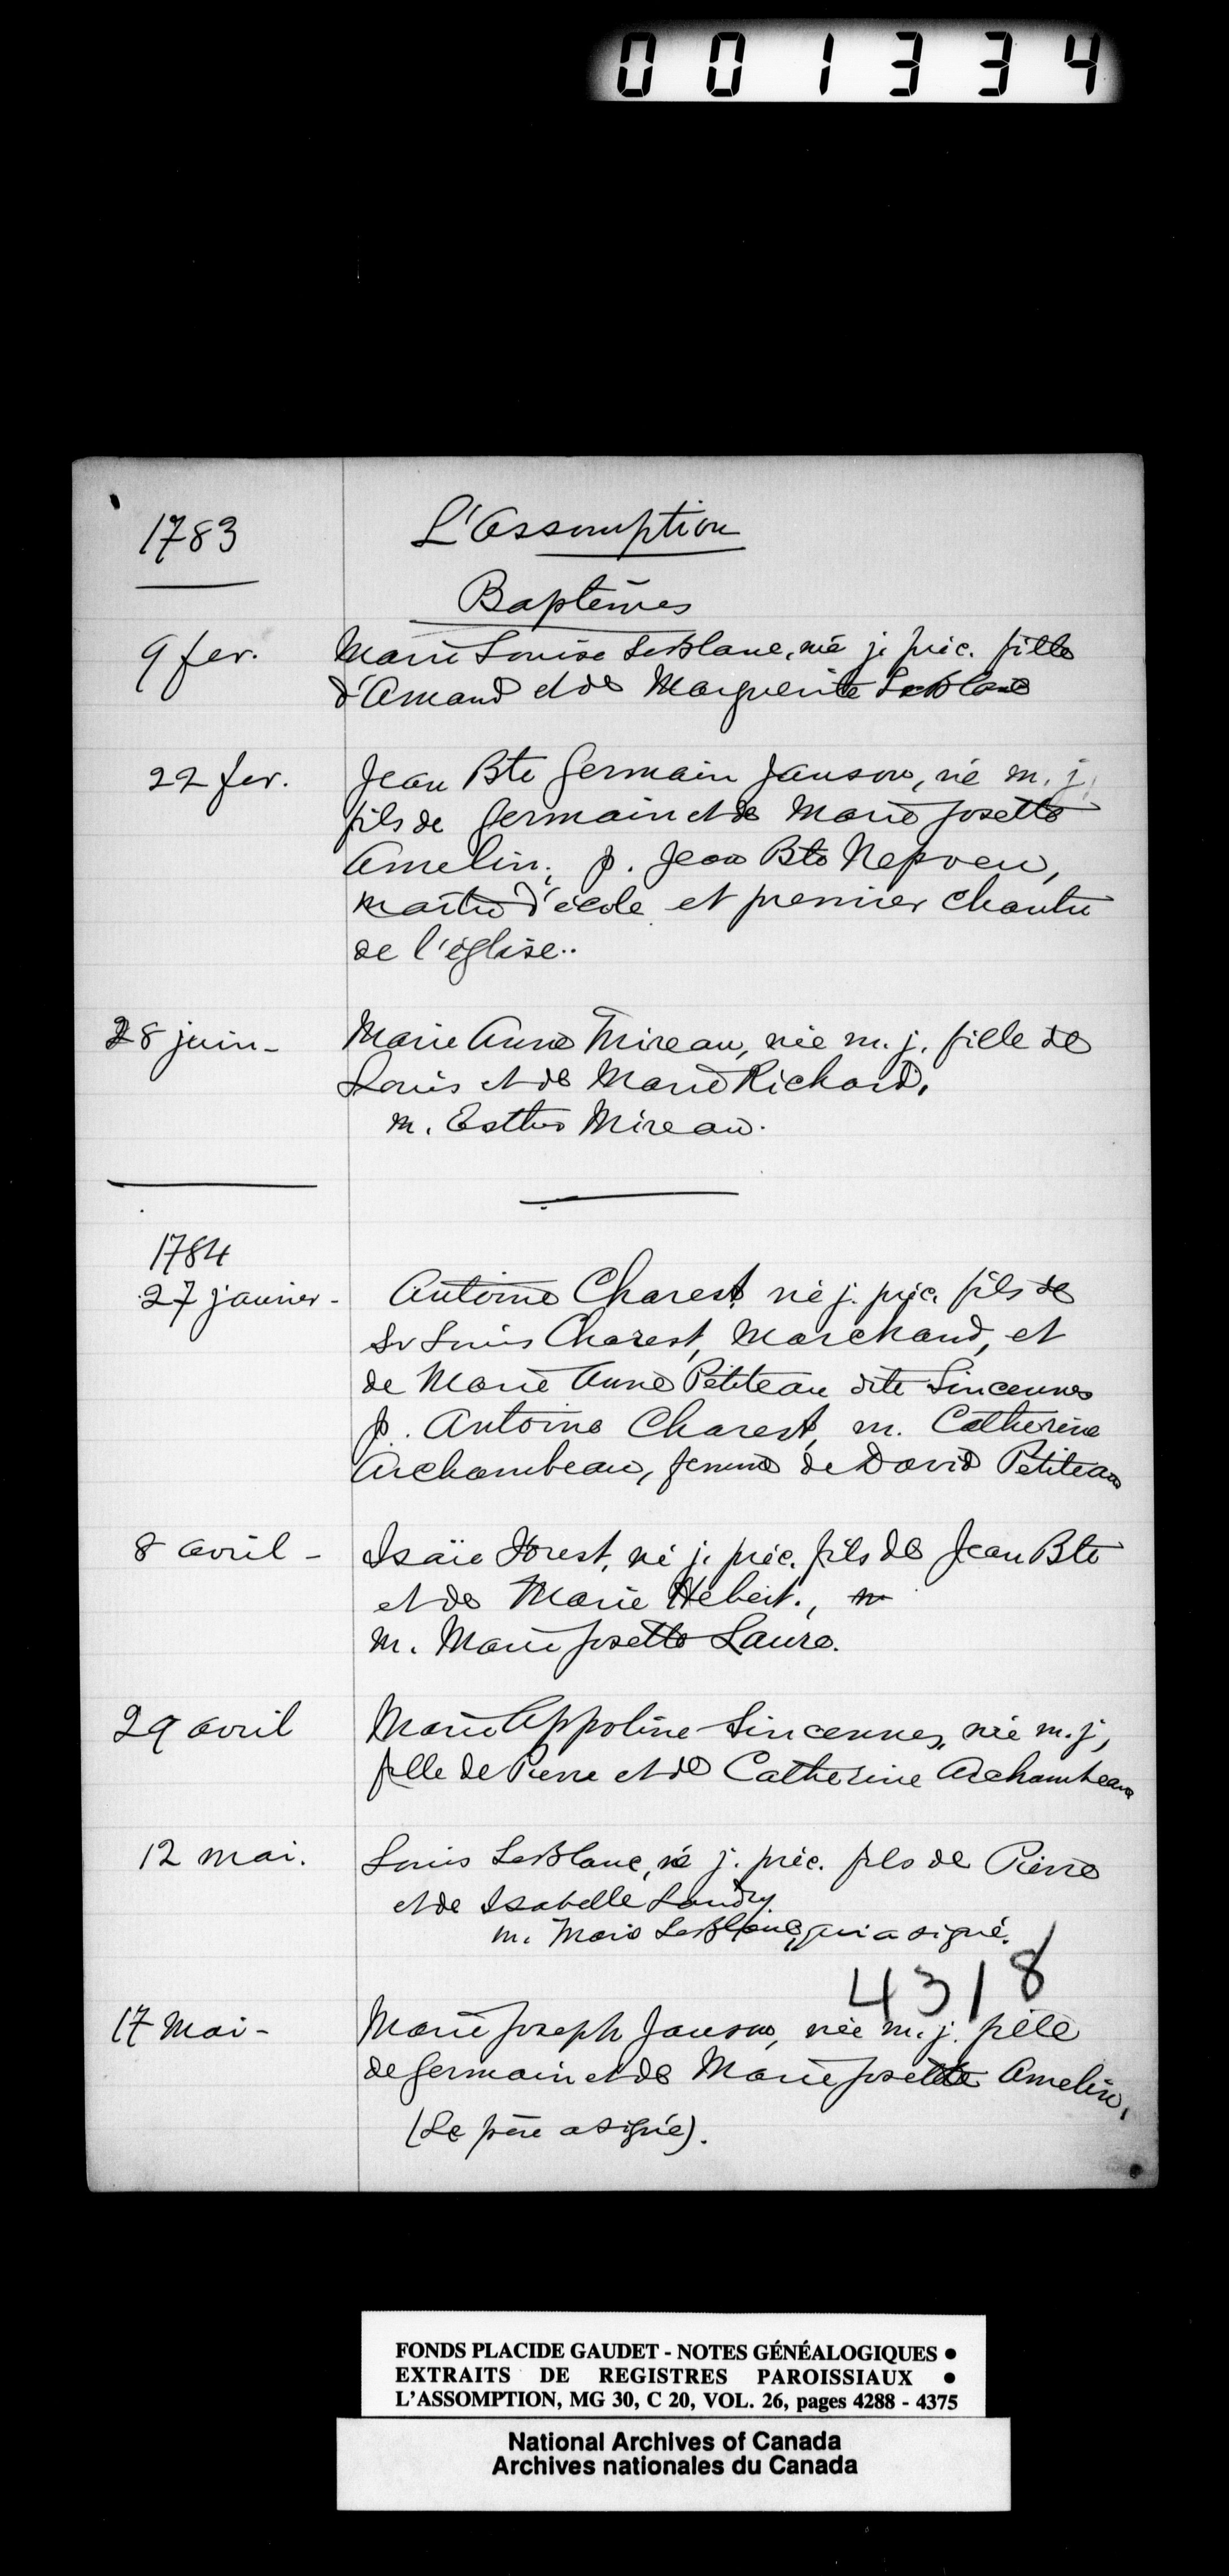 001334
1783
L'Assomption
Baptêmes
9 fev. Marie Louise LeBlanc, née j. préc. fille
d'Amand et de Marguerite LeBlanc
22 fev. Jean Bte Germain Janson, né m. j.
fils de Germain et de Marie Josette
Amelin; p. Jean Bte Nepveu,
maître d'école et premier chantre
de l'église..
28 juin - Marie Anne Mireau, née m. j. fille de
Louis et de Marie Richard.
m. Esther Mireau.
1784
27 janvier - Antoine Charest né j. préc. fils de
Sr Louis Charest, Marchand, et
de Marie Anne Petiteau dite Sincennes
p. Antoine Charest, m. Catherine
Archambeau, femme de David Petiteau
8 avril - Isaïe Forest, né j. préc. fils de Jean Bte
et de Marie Hebert.,
m. Marie Josette Laure.
29 avril Marie Appoline Sincennes, née m. j,
fille de Pierre et de Catherine Archambeau
12 mai. Louis LeBlanc, né j. préc. fils de Pierre
et de Isabelle Landry.
m. Marie LeBlanc, qui a signé.
4318
17 Mai - Marie Joseph Janson, née m. j. fille
de Germain et de Marie Josette Amelin,
(Le père a signé).
FONDS PLACIDE GAUDET - NOTES GÉNÉALOGIQUES •
EXTRAITS DE REGISTRES PAROISSIAUX •
L'ASSOMPTION, MG 30, C 20, VOL. 26, pages 4288 - 4375
National Archives of Canada
Archives nationales du Canada